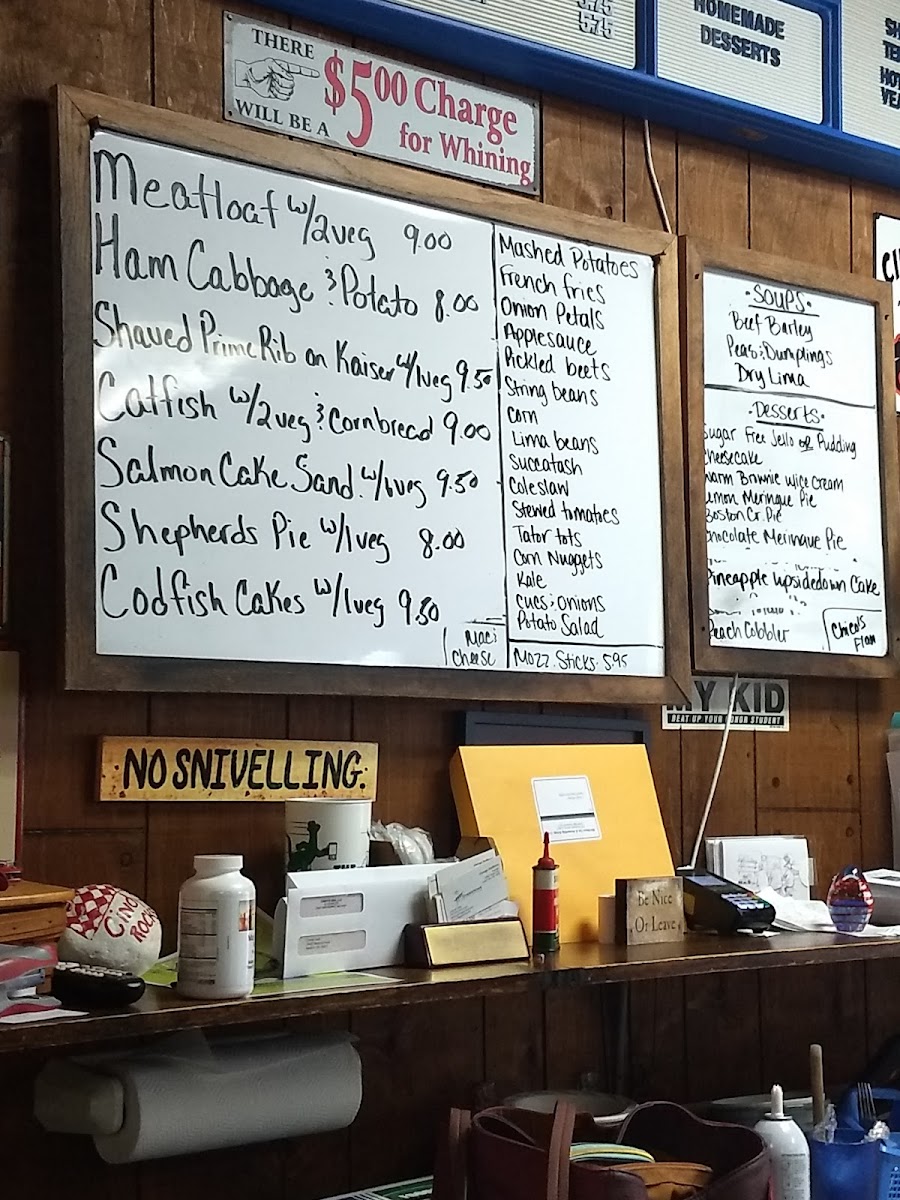 5.75
5.75
HOMEMADE
DESSERTS
THERE
WILL BE A
$5.00 Charge
for Whining
Meatloaf w/2veg 9.00
Ham Cabbage & Potato 8.00
Shaved Prime Rib on Kaiser w/1veg 9.50
Catfish w/2veg & Cornbread 9.00
Salmon Cake Sand. w/1veg 9.50
Shepherds Pie w/1veg 8.00
Codfish Cakes w/1veg 9.50
Mac &
Cheese
Mashed Potatoes
French fries
Onion Petals
Applesauce
Pickled beets
String beans
Corn
Lima beans
Succatash
Coleslaw
Stewed tomatoes
Tator tots
Corn Nuggets
Kale
cucs & onions
Potato Salad
Mozz. Sticks 5.95
• SOUPS •
Beef Barley
Peas & Dumplings
Dry Lima
• Desserts •
Sugar Free Jello or Pudding
Cheesecake
Warm Brownie w/ice cream
Lemon Meringue Pie
Boston Cr. Pie
Chocolate Meringue Pie
Pineapple upsidedown Cake
Peach Cobbler
MY KID
BEAT UP YOUR HONOR STUDENT
NO SNIVELLING.
Be Nice
Or Leave
ROCK